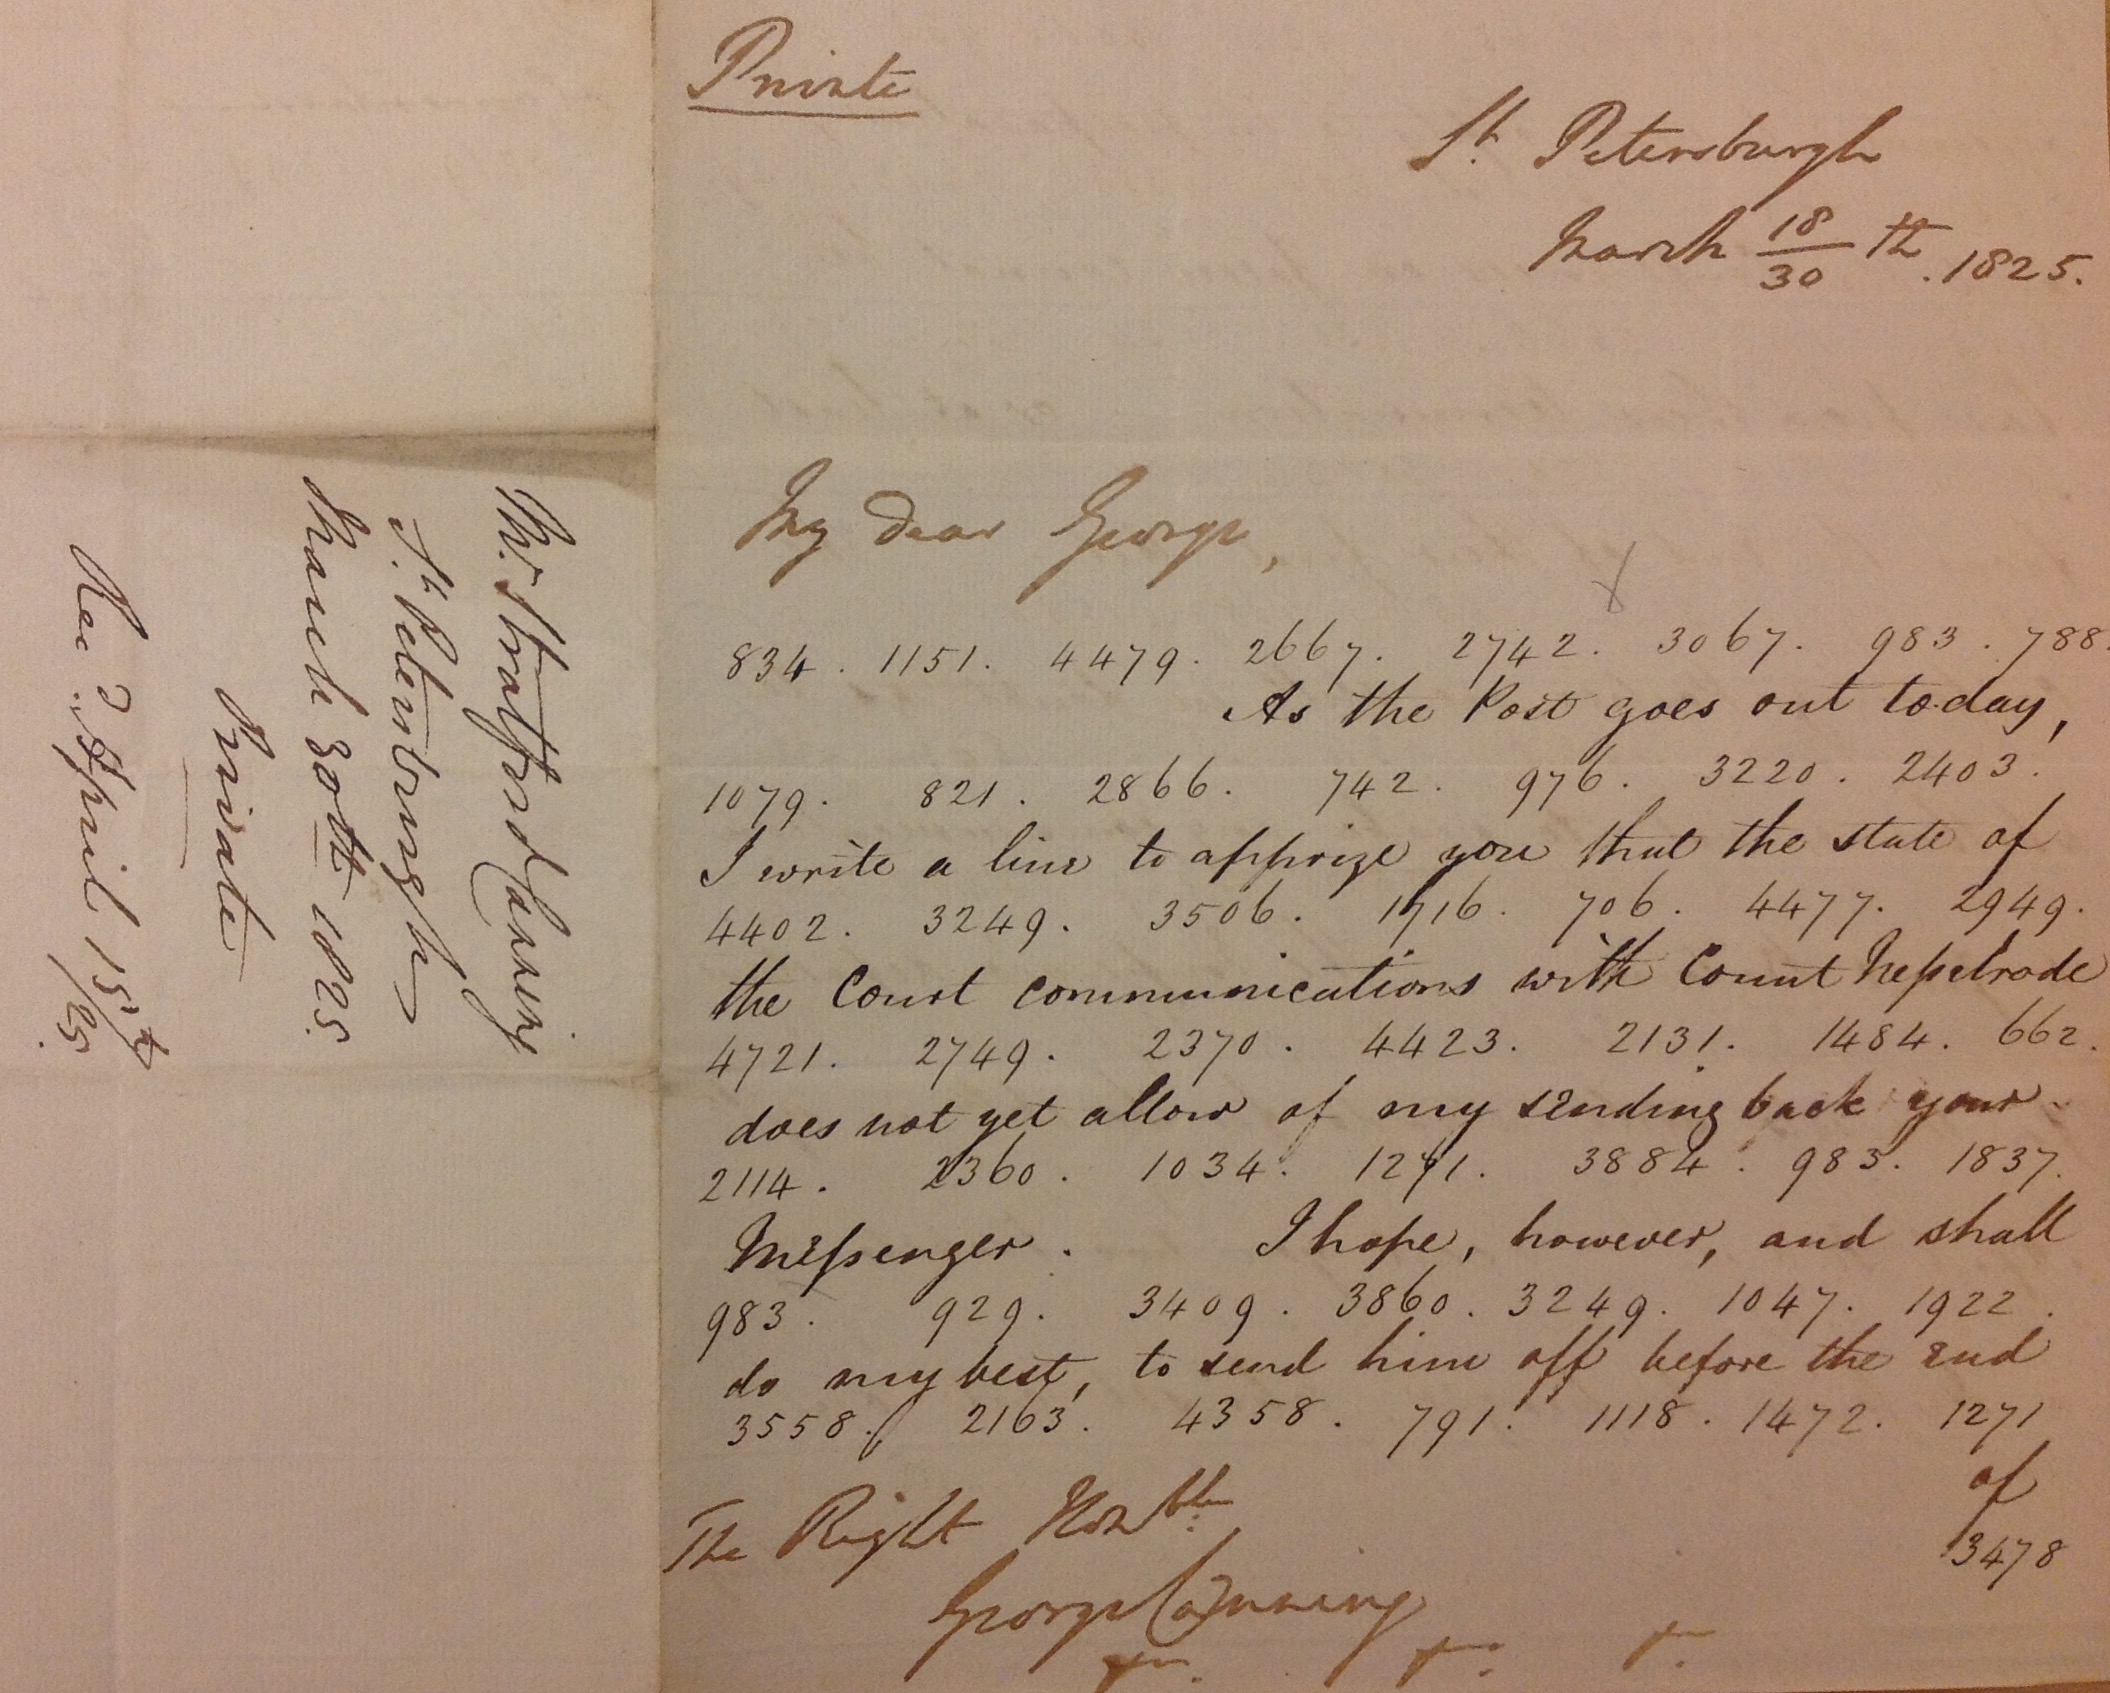 Private
St. Petersburgh
March 18/30 th. 1825.
My dear George,
834. 1151. 4479. 2667. 2742. 3067. 983. 788.
As the Post goes out to-day,
1079. 821. 2866. 742. 976. 3220. 2403.
I write a line to apprize you that the state of
4402. 3249. 3506. 1716. 706. 4477. 2949.
the Court communications with Count Nesselrode
4721. 2749. 2370. 4423. 2131. 1484. 662.
does not yet allow of my sending back your
2114. 2360. 1034. 1271. 3884. 983. 1837.
Messenger. I hope, however, and shall
983. 929. 3409. 3860. 3249. 1047. 1922.
do my best, to send him off before the end
3558. 2163. 4358. 791. 1118. 1472. 1271
of
3478
The Right Honble:
George Canning
Mr. Stratford Canning
St. Petersburgh
March 30th 1825.
Private
Recd. April 15th/25.